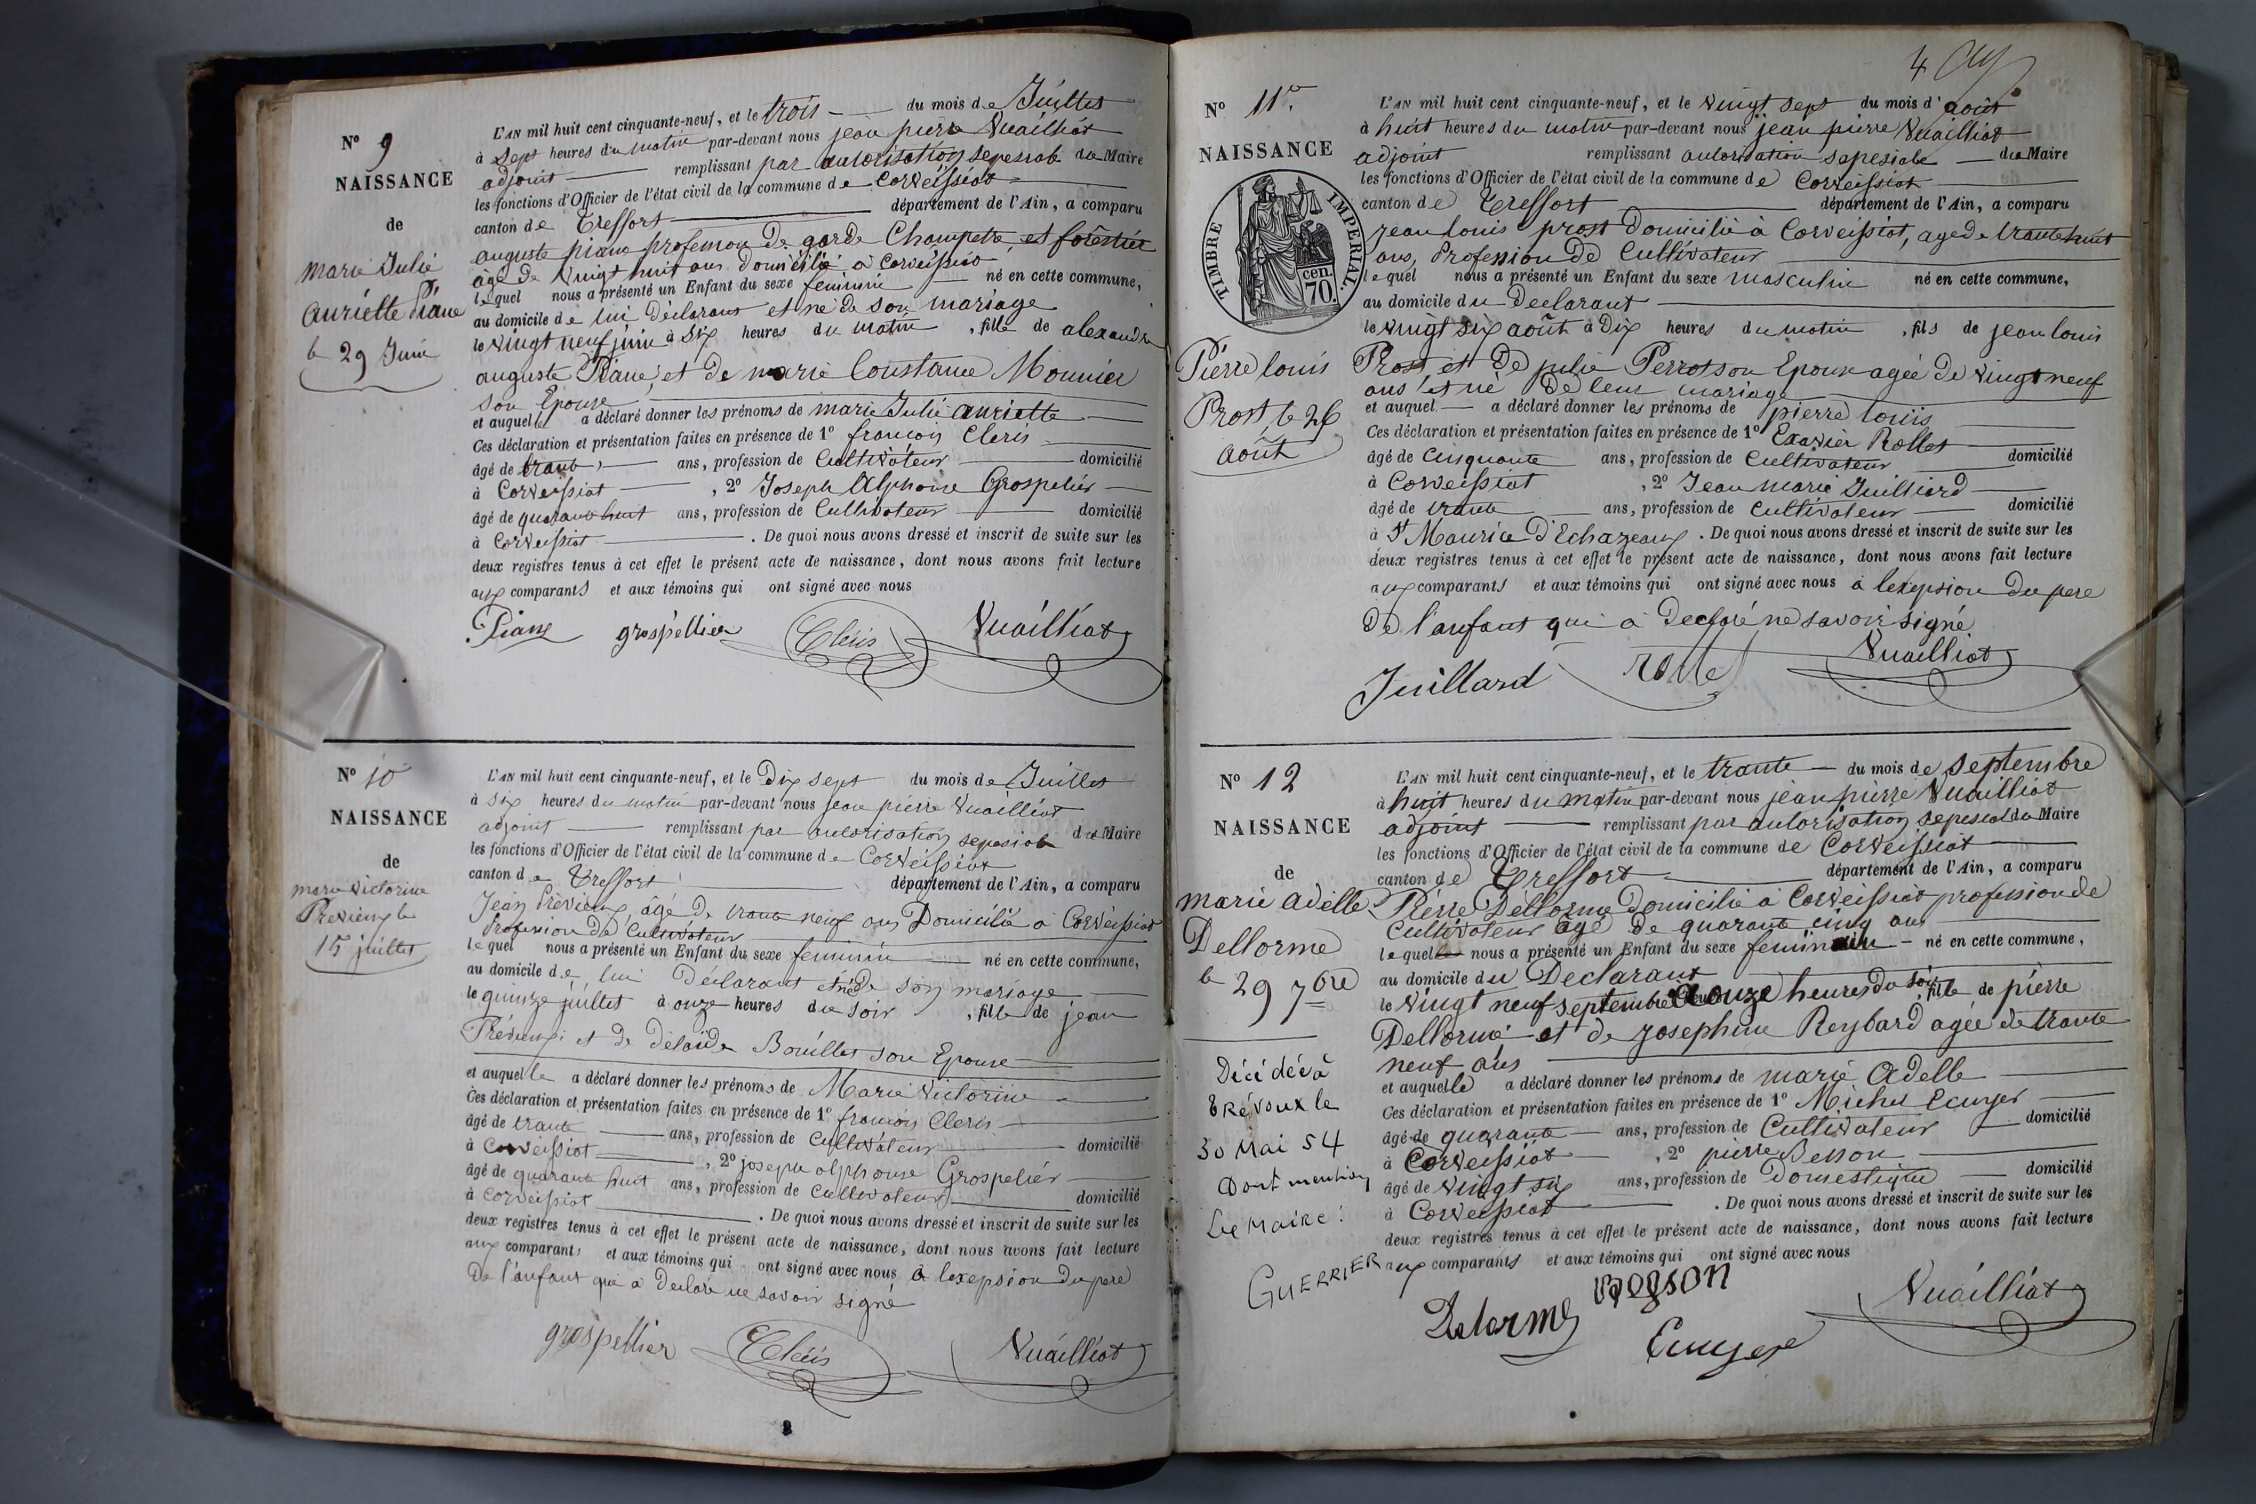 N° 9
NAISSANCE
de
marie Julie
auriette Piane
le 29 Juin
L'AN mil huit cent cinquante-neuf, et le trois du mois de Juillet
à sept heures du matin par-devant nous jean pierre Vuailliat
adjoint remplissant par autorisation sepesiale du Maire
les fonctions d'Officier de l'état civil de la commune de Corveissiat
canton de Treffort département de l'Ain, a comparu
auguste piane profession de garde Champetre et forêstier
âgé de vingt huit ans domicilié à Corveissiat
lequel nous a présenté un Enfant du sexe feminin né en cette commune,
au domicile de lui Déclarant et né de son mariage
le vingt neuf juin à six heures du matin, fille de alexandre
auguste Piane, et de marie Constance Mounier
son Epouse
et auquelle a déclaré donner les prénoms de marie Julie auriette
Ces déclaration et présentation faites en présence de 1° francois Cleris
âgé de trante ans, profession de Cultivateur domicilié
à Corveissiat, 2° Joseph Alphonse Grospelier
âgé de quarante huit ans, profession de Cultivateur domicilié
à Corveissiat. De quoi nous avons dressé et inscrit de suite sur les
deux registres tenus à cet effet le présent acte de naissance, dont nous avons fait lecture
aux comparants et aux témoins qui ont signé avec nous
Piane grospellier Cléris Vuailliat
N° 10
NAISSANCE
de
marie victorine
Previeux le
15 juillet
L'AN mil huit cent cinquante-neuf, et le Dix sept du mois de Juillet
à six heures du matin par-devant nous jean pierre Vuailliat
adjoint remplissant par autorisation sepesiale du Maire
les fonctions d'Officier de l'état civil de la commune de Corveissiat
canton de Treffort département de l'Ain, a comparu
Jean Prévieux âgé de trante neuf ans Domicilié à Corveissiat
Profession de Cultivateur
lequel nous a présenté un Enfant du sexe feminin né en cette commune,
au domicile de lui Déclarant et né de son mariage
le quinze juillet à onze heures du soir, fille de jean
Prévieux et de Delaïde Bouillet son Epouse
et auquelle a déclaré donner les prénoms de Marie Victorine
Ces déclaration et présentation faites en présence de 1° francois Cleris
âgé de trante ans, profession de Cultivateur domicilié
à Corveissiat, 2° joseph alphonse Grospelier
âgé de quarante huit ans, profession de Cultivateur domicilié
à Corveissiat. De quoi nous avons dressé et inscrit de suite sur les
deux registres tenus à cet effet le présent acte de naissance, dont nous avons fait lecture
aux comparants et aux témoins qui ont signé avec nous à lexepsion du pere
de l'anfant qui a Declaré ne savoir signé
grospellier Cléris Vuailliat
4
N° 11
NAISSANCE
TIMBRE IMPERIAL.
70. cen.
Pierre louis
Prost, le 26
août
L'AN mil huit cent cinquante-neuf, et le vingt sept du mois d'août
à huit heures du matin par-devant nous jean pierre Vuailliat
adjoint remplissant autorisation sepesiale du Maire
les fonctions d'Officier de l'état civil de la commune de Corveissiat
canton de Treffort département de l'Ain, a comparu
jean louis prost Domicilié à Corveissiat, agé de trante huit
ans, Profession de Cultivateur
lequel nous a présenté un Enfant du sexe masculin né en cette commune,
au domicile du Declarant
le vingt six août à Dix heures du matin, fils de jean louis
Prost, et de julie Perrot son Epouse agée de vingt neuf
ans et né de leur mariage
et auquel a déclaré donner les prénoms de pierre louis
Ces déclaration et présentation faites en présence de 1° Exavier Rollet
âgé de cinquante ans, profession de Cultivateur domicilié
à Corveissiat, 2° Jean marie Juilliard
âgé de trante ans, profession de Cultivateur domicilié
à St Maurice D'Echazeaux. De quoi nous avons dressé et inscrit de suite sur les
deux registres tenus à cet effet le présent acte de naissance, dont nous avons fait lecture
aux comparants et aux témoins qui ont signé avec nous à lexepsion du pere
de l'anfant qui a Declaré ne savoir signé
Juillard Vuailliat
N° 12
NAISSANCE
de
marie adelle
Dellorme
le 29 7bre
Décidéé à
Trévoux le
30 Mai 54
Dont mention
Le Maire:
GUERRIER
L'AN mil huit cent cinquante-neuf, et le trante du mois de septembre
à huit heures du matin par-devant nous jean pierre Vuailliat
adjoint remplissant par autorisation sepesial du Maire
les fonctions d'Officier de l'état civil de la commune de Corveissiat
canton de Treffort département de l'Ain, a comparu
Pierre Dellorme Domicilié à Corveissiat profession de
Cultivateur âgé de quarante cinq ans
lequel nous a présenté un Enfant du sexe feminin né en cette commune,
au domicile du Declarant
le vingt neuf septembre a onze heures du soir, fille de pierre
Dellorme et de josephine Reybard agée de trante
neuf ans
et auquelle a déclaré donner les prénoms de marie Adelle
Ces déclaration et présentation faites en présence de 1° Michel Ecuyer
âgé de quarante ans, profession de Cultivateur domicilié
à Corveissiat, 2° pierre Besson
âgé de vingt six ans, profession de Domestique domicilié
à Corveissiat. De quoi nous avons dressé et inscrit de suite sur les
deux registres tenus à cet effet le présent acte de naissance, dont nous avons fait lecture
aux comparants et aux témoins qui ont signé avec nous
Delorme besson Vuailliat
Ecuyer